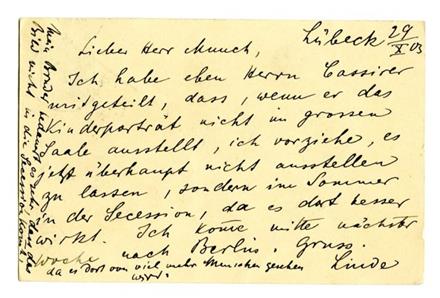 Lübeck 29/X 03
Lieber Herr Munch,
Ich habe eben Herrn Cassirer
mitgeteilt, dass, wenn er das
Kinderporträt nicht im grossen
Saale ausstellt, ich vorziehe, es
jetzt überhaupt nicht ausstellen
zu lassen, sondern im Sommer
in der Secession, da es dort besser
wirkt. Ich kome mitte nächster
woche nach Berlin. Gruss.
Linde
da es dort von viel mehr Menschen gesehen
wird.
Mein Bruder es sehr, dass das
Bild nicht in die Secession kommt,